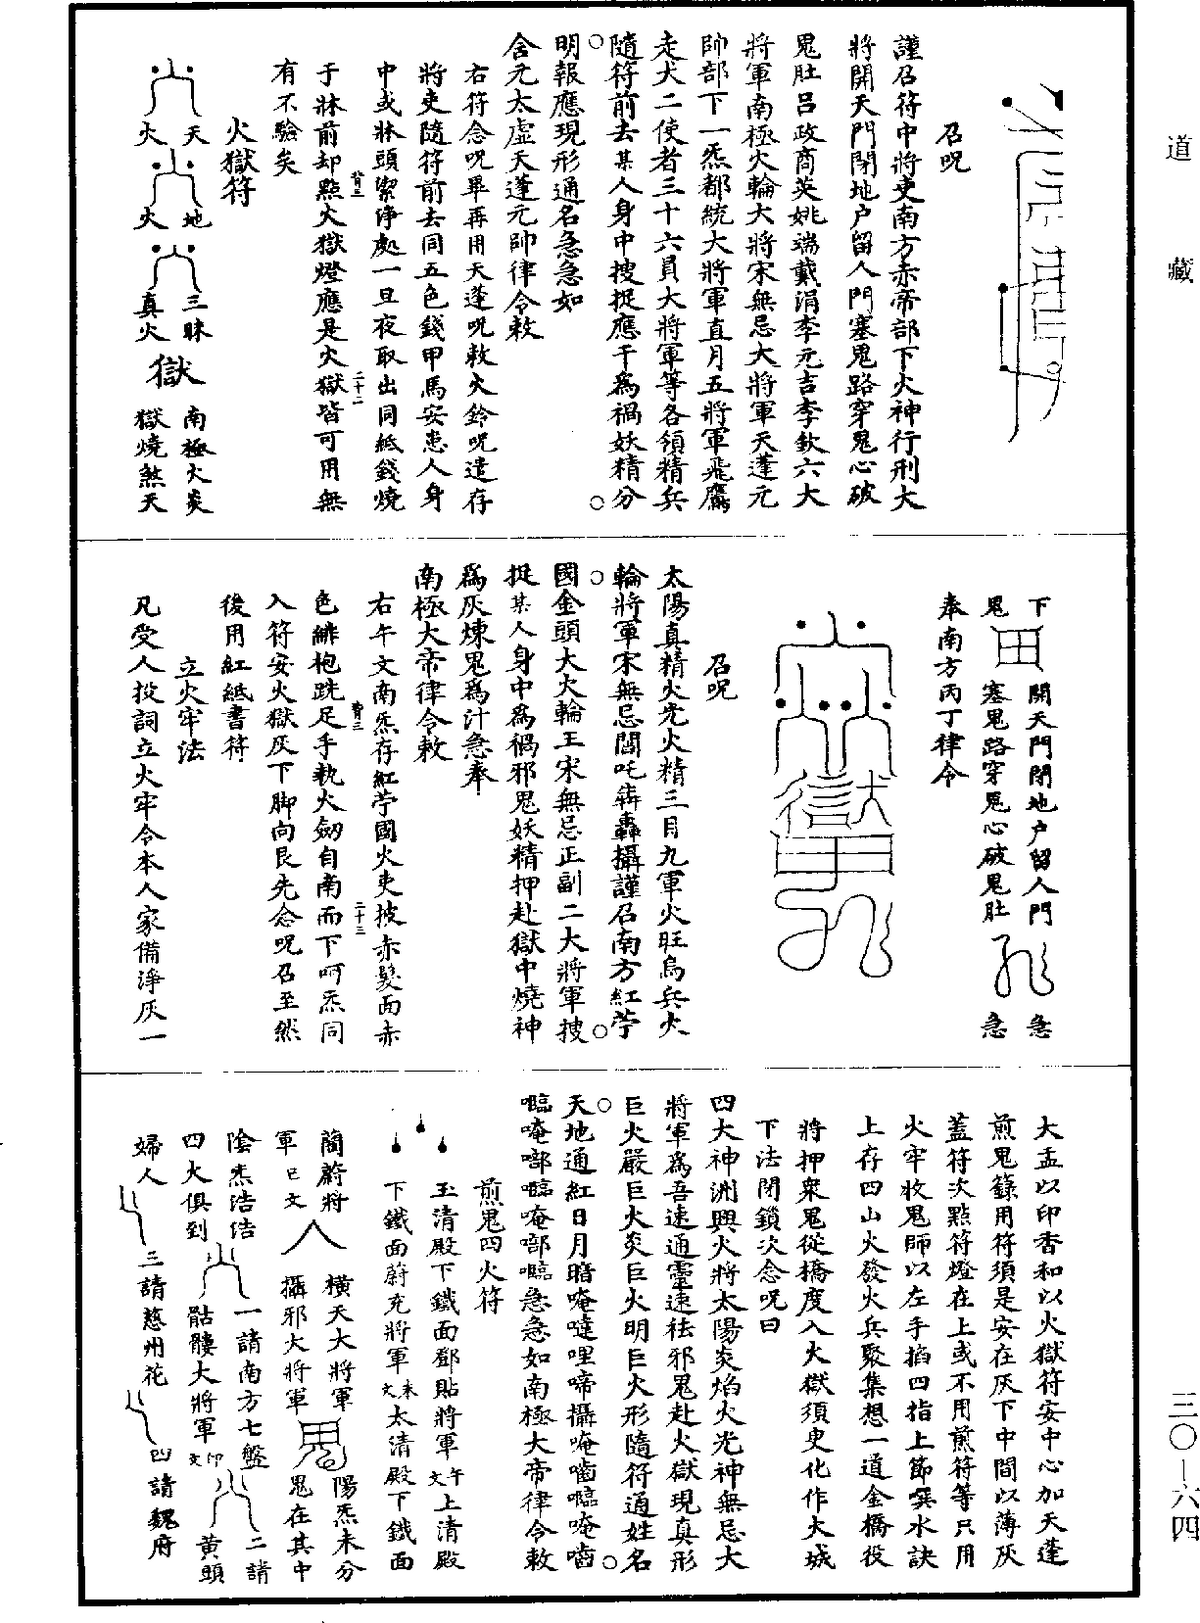 道藏
召呪
謹召符中將吏南方赤帝部下火神行刑大
將開天門閉地户留人門塞鬼路穿鬼心破
鬼肚呂政商英姚端戴涓李元吉李欽六大
將軍南極火輪大將宋無忌大將軍天蓬元
帥部下一炁都統大將軍直月五將軍飛鷹
走犬二使者三十六員大將軍等各領精兵
隨符前去某人身中搜捉應干為禍妖精分
明報應現形通名急急如
舍元太虛天蓬元帥律令敕
右符念呪畢再用天蓬呪敕火鈴呪遣存
將吏隨符前去同五色錢甲馬安患人身
中或牀頭潔淨處一旦夜取出同紙錢燒
背三 二十二
于牀前却點火獄燈應是火獄皆可用無
有不驗矣
火獄符
天火 地火 三昧真火 獄 南極火炎獄燒煞天
下 開天門閉地户留人門 急
鬼 塞鬼路穿鬼心破鬼肚 急
奉南方丙丁律令
召呪
太陽真精火光火精三目九軍火旺烏兵火
輪將軍宋無忌閶吒犇轟攝謹召南方紅䒢
國金頭大火輪王宋無忌正副二大將軍搜
捉某人身中為禍邪鬼妖精押赴獄中燒神
為灰煉鬼為汁急奉
南極大帝律令敕
右午文南炁存紅䒢國火吏披赤髮面赤
背三 二十三
色緋袍跣足手執火劒自南而下呵炁同
入符安火獄灰下脚向艮先念呪召至然
後用紅紙書符
立火牢法
凡受人投詞立火牢令本人家備淨灰一
大盂以印香和以火獄符安中心加天蓬
煎鬼籙用符須是安在灰下中間以薄灰
蓋符次點符燈在上或不用煎符等只用
火牢收鬼師以左手掐四指上節噀水訣
上存四山火發火兵聚集想一道金橋役
將押衆鬼從橋度入火獄須臾化作大城
下法閉鎖次念呪曰
四大神洲興火將太陽炎焰火光神無忌大
將軍為吾速通靈速祛邪鬼赴火獄現真形
巨火嚴巨火炎巨火明巨火形隨符通姓名
天地通紅日月暗唵噠哩啼攝唵嚙𠻴唵嚙
𠻴唵㗐𠻴唵㗐𠻴急急如南極大帝律令敕
煎鬼四火符
玉清殿下鐵面鄧貼將軍午文上清殿
下鐵面蔚充將軍未文太清殿下鐵面
藺蔚將 橫天大將軍 陽炁未分
軍巳文 攝邪大將軍 鬼在其中
陰炁浩浩 一請南方七盤 二請
四火俱到 骷髏大將軍卯文 黄頭
婦人 三請慈州花 四請魏府
三〇—六四